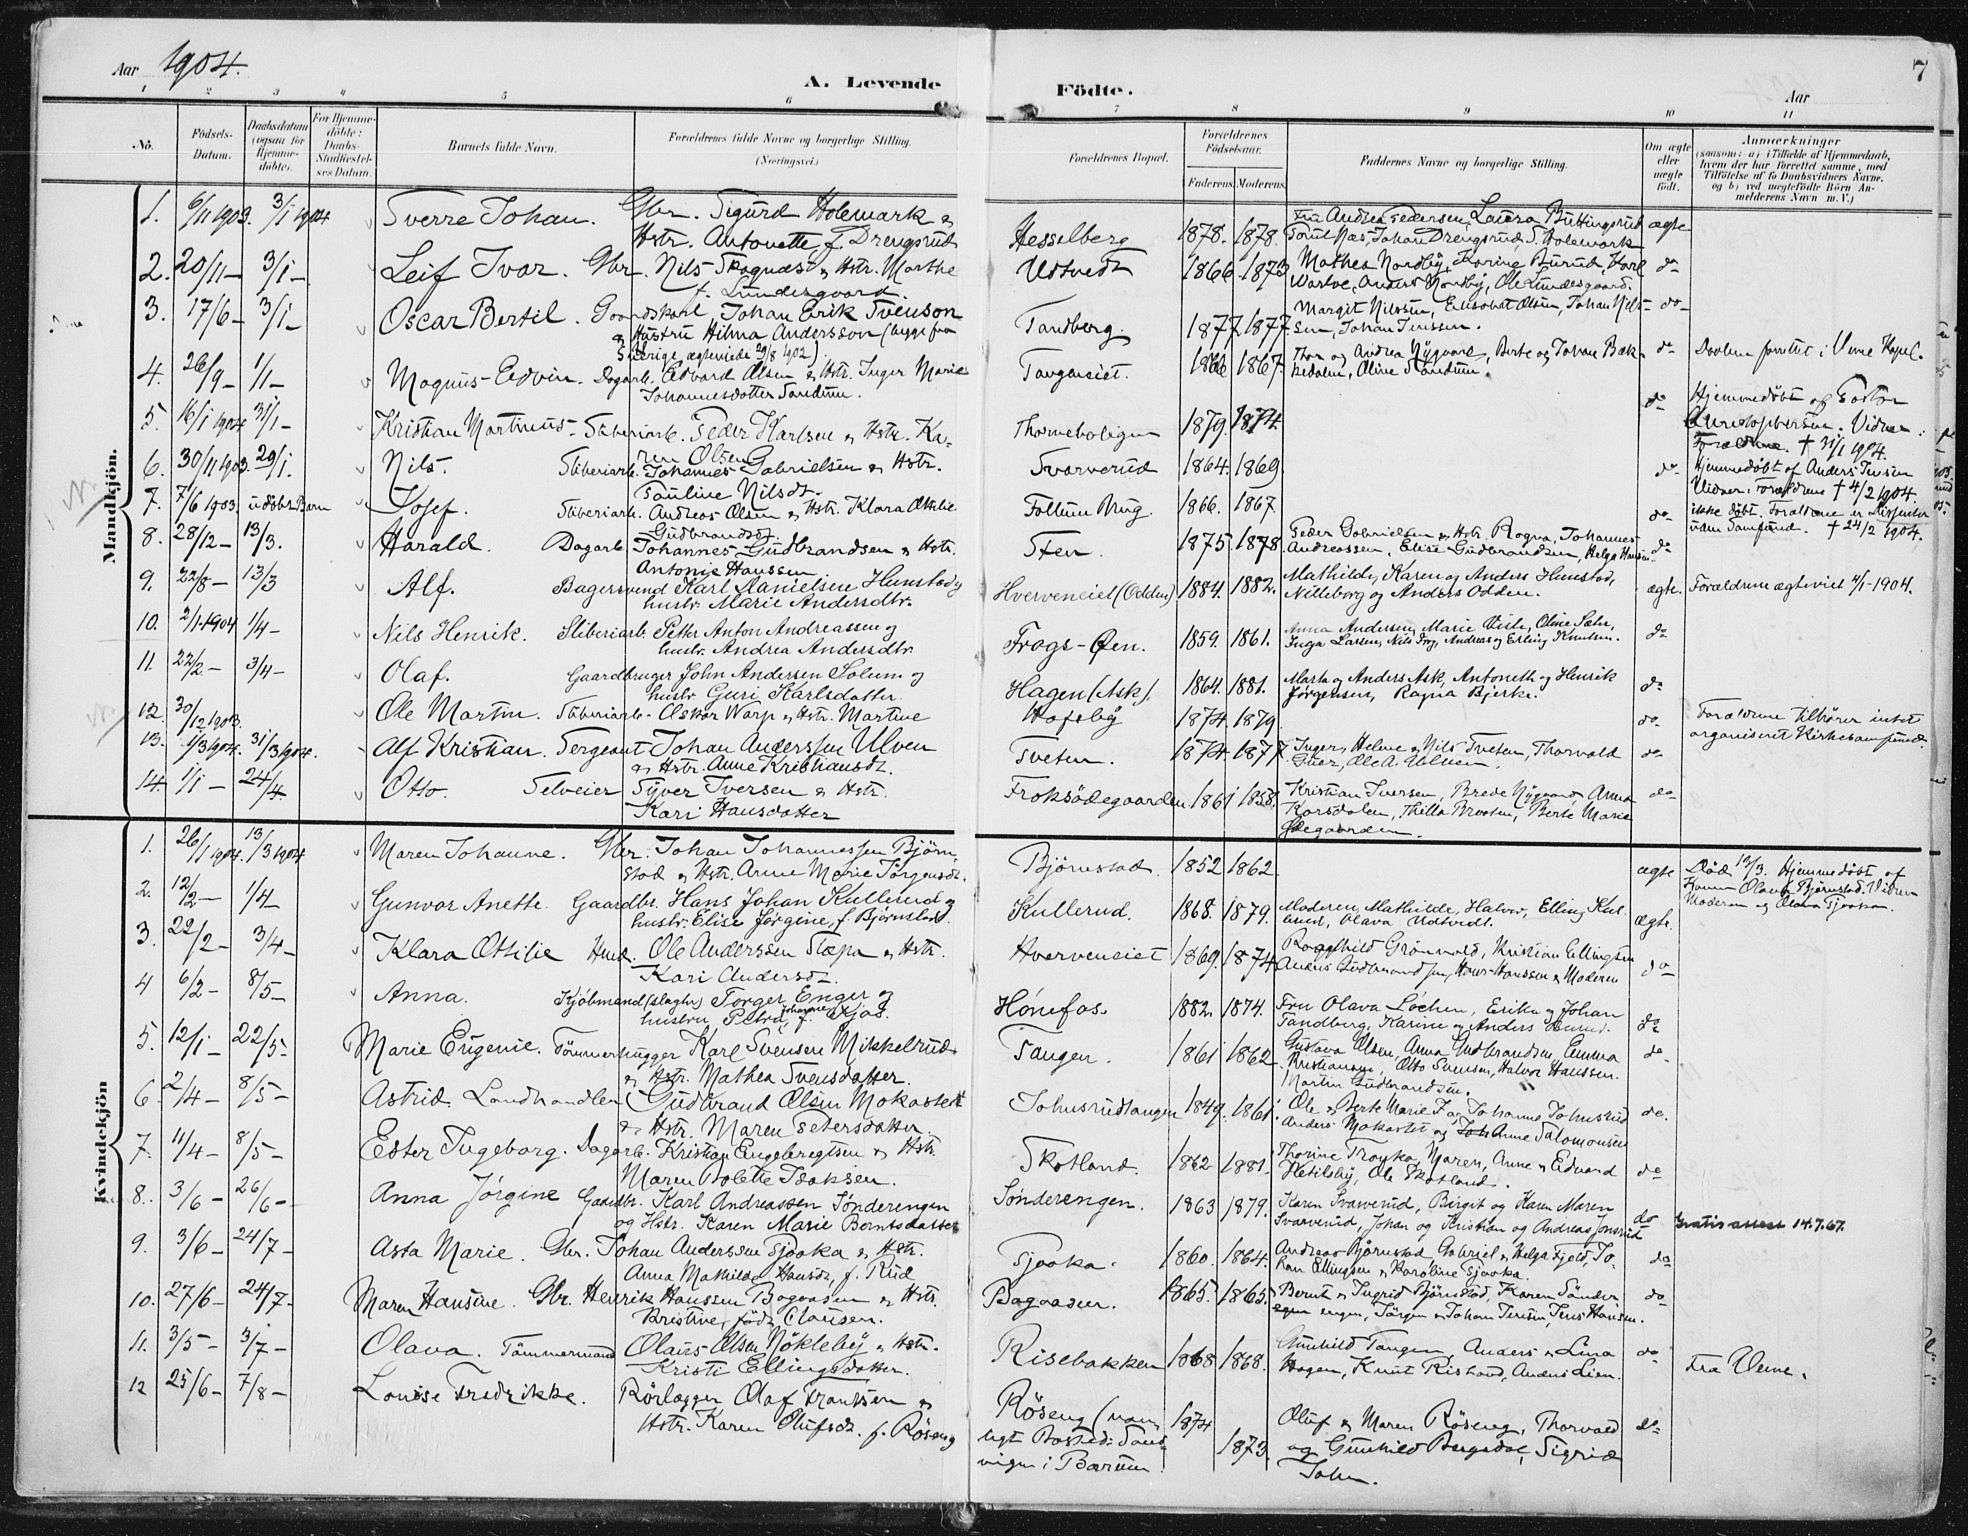 Aar 1904.
A. Levende
Födte.
Aar
7
1 2 3 4 5 6 7 8 9 10 11
No.
Födsels-Datum.
Daabsdatum (ogsaa for Hjemme-döbte).
For Hjemme-döbte: Daabs-Stadfæstel-ses Datum.
Barnets fulde Navn.
Forældrenes fulde Navne og borgerlige Stilling. (Næringsvei)
Forældrenes Bopæl.
Forældrenes Födselsaar.
Faderens. Moderens.
Faddernes Navne og borgerlige Stilling.
Om ægte eller uægte födt.
Anmærkninger
(saasom: a) i Tilfælde af Hjemmedaab,
hvem der har forrettet samme, med
Tilföielse af to Daabsvidners Navne.
og b) ved uægtefödte Börn An-
melderens Navn m. V.)
Mandkjön.
1. 6/11 1903. 3/1 1904 Sverre Johan. Gbr. Sigurd Holemark &
Hstr. Antonette f. Drengsrud Hesselberg 1878. 1878. Fru Andrea Pedersen, Laura Buttingsrud
Torul Næs, Johan Drengsrud, S. Holemark ægte
2. 20/11 – 3/1 – Leif Ivar. Gbr. Nils Skagnæs & Hstr. Marthe
f. Lundesgaard. Udtvedt 1866. 1873 Mathea Nordby, Karine Burud, Karl
Anders Nordby, Ole Lundesgaard. do
3. 17/6 – 3/1 – Oscar Bertil. Gaardskarl Johan Erik Svenson
& Hustru Hilma Andersson (begge fra
Sverige, ægteviede 29/8 1902). Tandberg. 1877. 1877. Margit Nilssen, Elisabet Olsen, Johan Nils-
sen, Johan Jenssen. do
4. 26/9 – 1/1 – Magnus Edvin. Dagarb. Edvard Olsen & Hstr. Inger Marie
Johannesdotter Sandum. Tangeneiet. 1866 1867 Thor og Andrea Nygaard, Berte og Johan Bæk-
kedalen, Oline Sandum. do Daaben forrettet i Veme Kapel.
5. 16/1 1904 31/1 – Kristian Martinus. Sliberiarb. Peder Karlsen & Hstr. Ka-
ren Olsen Thorneboligen 1879. 1874. do Hjemmedöbt af Pastor
Christophersen. Vidner:
Forældrene. † 31/1 1904.
6. 30/11 1903. 29/1. Nils. Sliberiarb. Johannes Gabrielsen & Hstr.
Pauline Nilsdt. Svarverud 1864. 1869 do Hjemmedöbt af Anders Jensen
Vidner: Forældrene † 4/2 1904.
7. 7/6 1903. udöbt Barn Josef. Sliberiarb. Andreas Olsen & Hstr. Klara Otilie
Gudbrandsdt. Follum Brug. 1866. 1867 do ikke döbt. Forældrene er Dissenter
uden Samfund. † 24/2 1904.
8. 28/12 – 13/3. Harald. Dagarb. Johannes Gudbrandsen & Hstr.
Antonie Hanssen. Sten. 1875. 1878 Peder Gabrielsen & Hstr. Ragna, Johannes
Andreassen, Elise Gudbrandsen, Helga Hansen. do
9. 22/8 – 13/3 Alf. Bagersvend Karl Danielsen Hunstad &
hustr. Marie Andersdtr. Hverveneiet (Odden) 1884. 1882. Mathilde, Karen og Anders Hunstad,
Nilleborg og Anders Odden. ægte. Forældrene ægteviet 4/1-1904.
10. 2/1.1904 1/4 – Nils Henrik. Sliberiarb. Petter Anton Andreassen og
hustr. Andrea Andersdtr. Frogs-Øen. 1859. 1861. Anna Andersen, Marie Viste, Oline Sætr,
Inga Larsen, Nils Frog, Andreas og Erling Knutsen. do
11. 22/2 – 3/4 – Olaf. Gaardbruger John Andersen Solum og
hustr. Guri Karlsdatter. Hagen (Ask). 1864. 1881. Marta og Anders Ask, Antoneth og Henrik
Jørgensen, Ragna Bjerke. do
12. 30/12 1903. Ole Martin. Sliberiarb. Oskar Warp & Hstr. Martine Hofsby 1874. 1879. do Forældrene tilhører intet
organiseret Kirkesamfund.
13. 1/3 1904. 31/3 1904. Alf Kristian. Sergeant Johan Anderssen Ulven
& Hstr. Anne Kristiansdt. Tveten. 1874. 1877. Inger, Helene & Nils Tveten, Thorvald
Ole A. Ulven. do
14. 1/1 – 24/4. Otto. Selveier Syver Iversen & Hstr.
Kari Hansdatter Froksödegaarden 1861 1858. Kristian Iversen, Brede Nygaard, Anna
Karsdalen, Thilla Braaten, Berte Marie
Ödegaarden. do
Kvindekjön
1. 26/1 1904. 13/3 1904 Maren Johanne. Gbr. Johan Johannessen Björn-
stad & Hstr. Anne Marie Jörgensdt. Björnstad. 1852 1862 ægte Död 13/3. Hjemmedöbt af
Konen Olava Bjørnstad. Vidner
Moderen og Olava Tjoaka.
2. 12/2 – 1/4 – Gunvor Anette. Gaardbr. Hans Johan Kullerud &
hustr. Elise Jørgine, f. Bjørnstad. Kullerud. 1868. 1879. Moderen, Mathilde, Halvor, Elling Kul-
lerud, Olava Udtvedt. ægte.
3. 22/2 – 3/4 – Klara Otilie Hmd. Ole Anderssen Stæpa & Hstr.
Kari Andersdt. Hverveneiet 1869. 1874 Ragnhild Grönvold, Kristian Ellingsen
Anders Gudbrandsen, Hans Hanssen & Moderen do
4 6/2 – 8/5 – Anna. Kjøbmand (slagter) Torger Enger og
hustru Petra Johanne, f. Kjos. Hønefos. 1882. 1874. Fru Olava Löchen, Erika og Johan
Tandberg, Karine og Anders do
5. 12/1 – 22/5 – Marie Eugenie. Tømmerhugger Karl Svensen Mikkelrud
& Hstr. Mathea Svensdatter. Tangen. 1861 1862 Gustava Olsen, Anna Gudbrandsen, Emma
Kristiansen, Otto Svensen, Halvor Hanssen.
Martin Gudbrandsen. do
6. 2/4 – 8/5 – Astrid. Landhandler Gudbrand Olsen Mokastet
& Hstr. Maren Petersdatter. Johnsrudtangen 1849. 1861. Ole & Berte Marie Johanne Johnsrud
Anders Mokastet og Anne Salomonsen do.
7. 11/4 – 8/5 – Ester Ingeborg. Dagarb. Kristian Engebregtsen & Hstr
Maren Bolette Isaksen. Skotland. 1862 1881. Thorine Troyka, Maren, Anne & Edvard
Hetilsby, Ole Skotland. do
8. 3/6 – 26/6 – Anna Jörgine Gaardbr. Karl Andreassen Sønderengen
og Hstr. Karen Marie Berntsdatter Sønderengen. 1863 1879. Karen Svarverud, Birgit og Karen Maren
Svarverud, Johan og Kristian og Andreas Jonsrud do Gratis attest 14.7.67.
9. 3/6 – 24/7 – Asta Marie. Gbr. Johan Anderssen Tjoaka & Hstr.
Anna Mathilde Hansdt. f. Rud Tjoaka. 1860. 1864. Andreas Björnstad, Gabriel & Helga Fjeld, Jo-
han Ellingsen & Karoline Tjoaka. do
10. 27/6 – 24/7 – Maren Hansine. Gbr. Henrik Hanssen Bagaasen & Hstr.
Kristine, född Clausen. Bagaasen. 1865. 1865. Bernt & Ingrid Björnstad, Karen Sönder
engen, Jörgen & Johan Jensen, Jens Hansen. do
11. 3/5 – 3/7 – Olava. Tömmermand Olaus Olsen Nökleby & Hstr.
Kristi Ellingsdatter. Risebakken 1868 1868. Gunhild Tangen, Anders & Lina
Hagen, Knut Risland, Anders Lien. do Fra Veme.
12 25/6 – 7/8 – Louise Fredrikke. Rörlægger Olaf Frantsen &
Hstr. Karen Olufsdt. f. Røseng Röseng (van-
ligt Bosted: Sand-
vigen i Bærum 1874 1873. Oluf & Maren Röseng, Thorvald
og Gunhild Bergsdal, Sigrid do